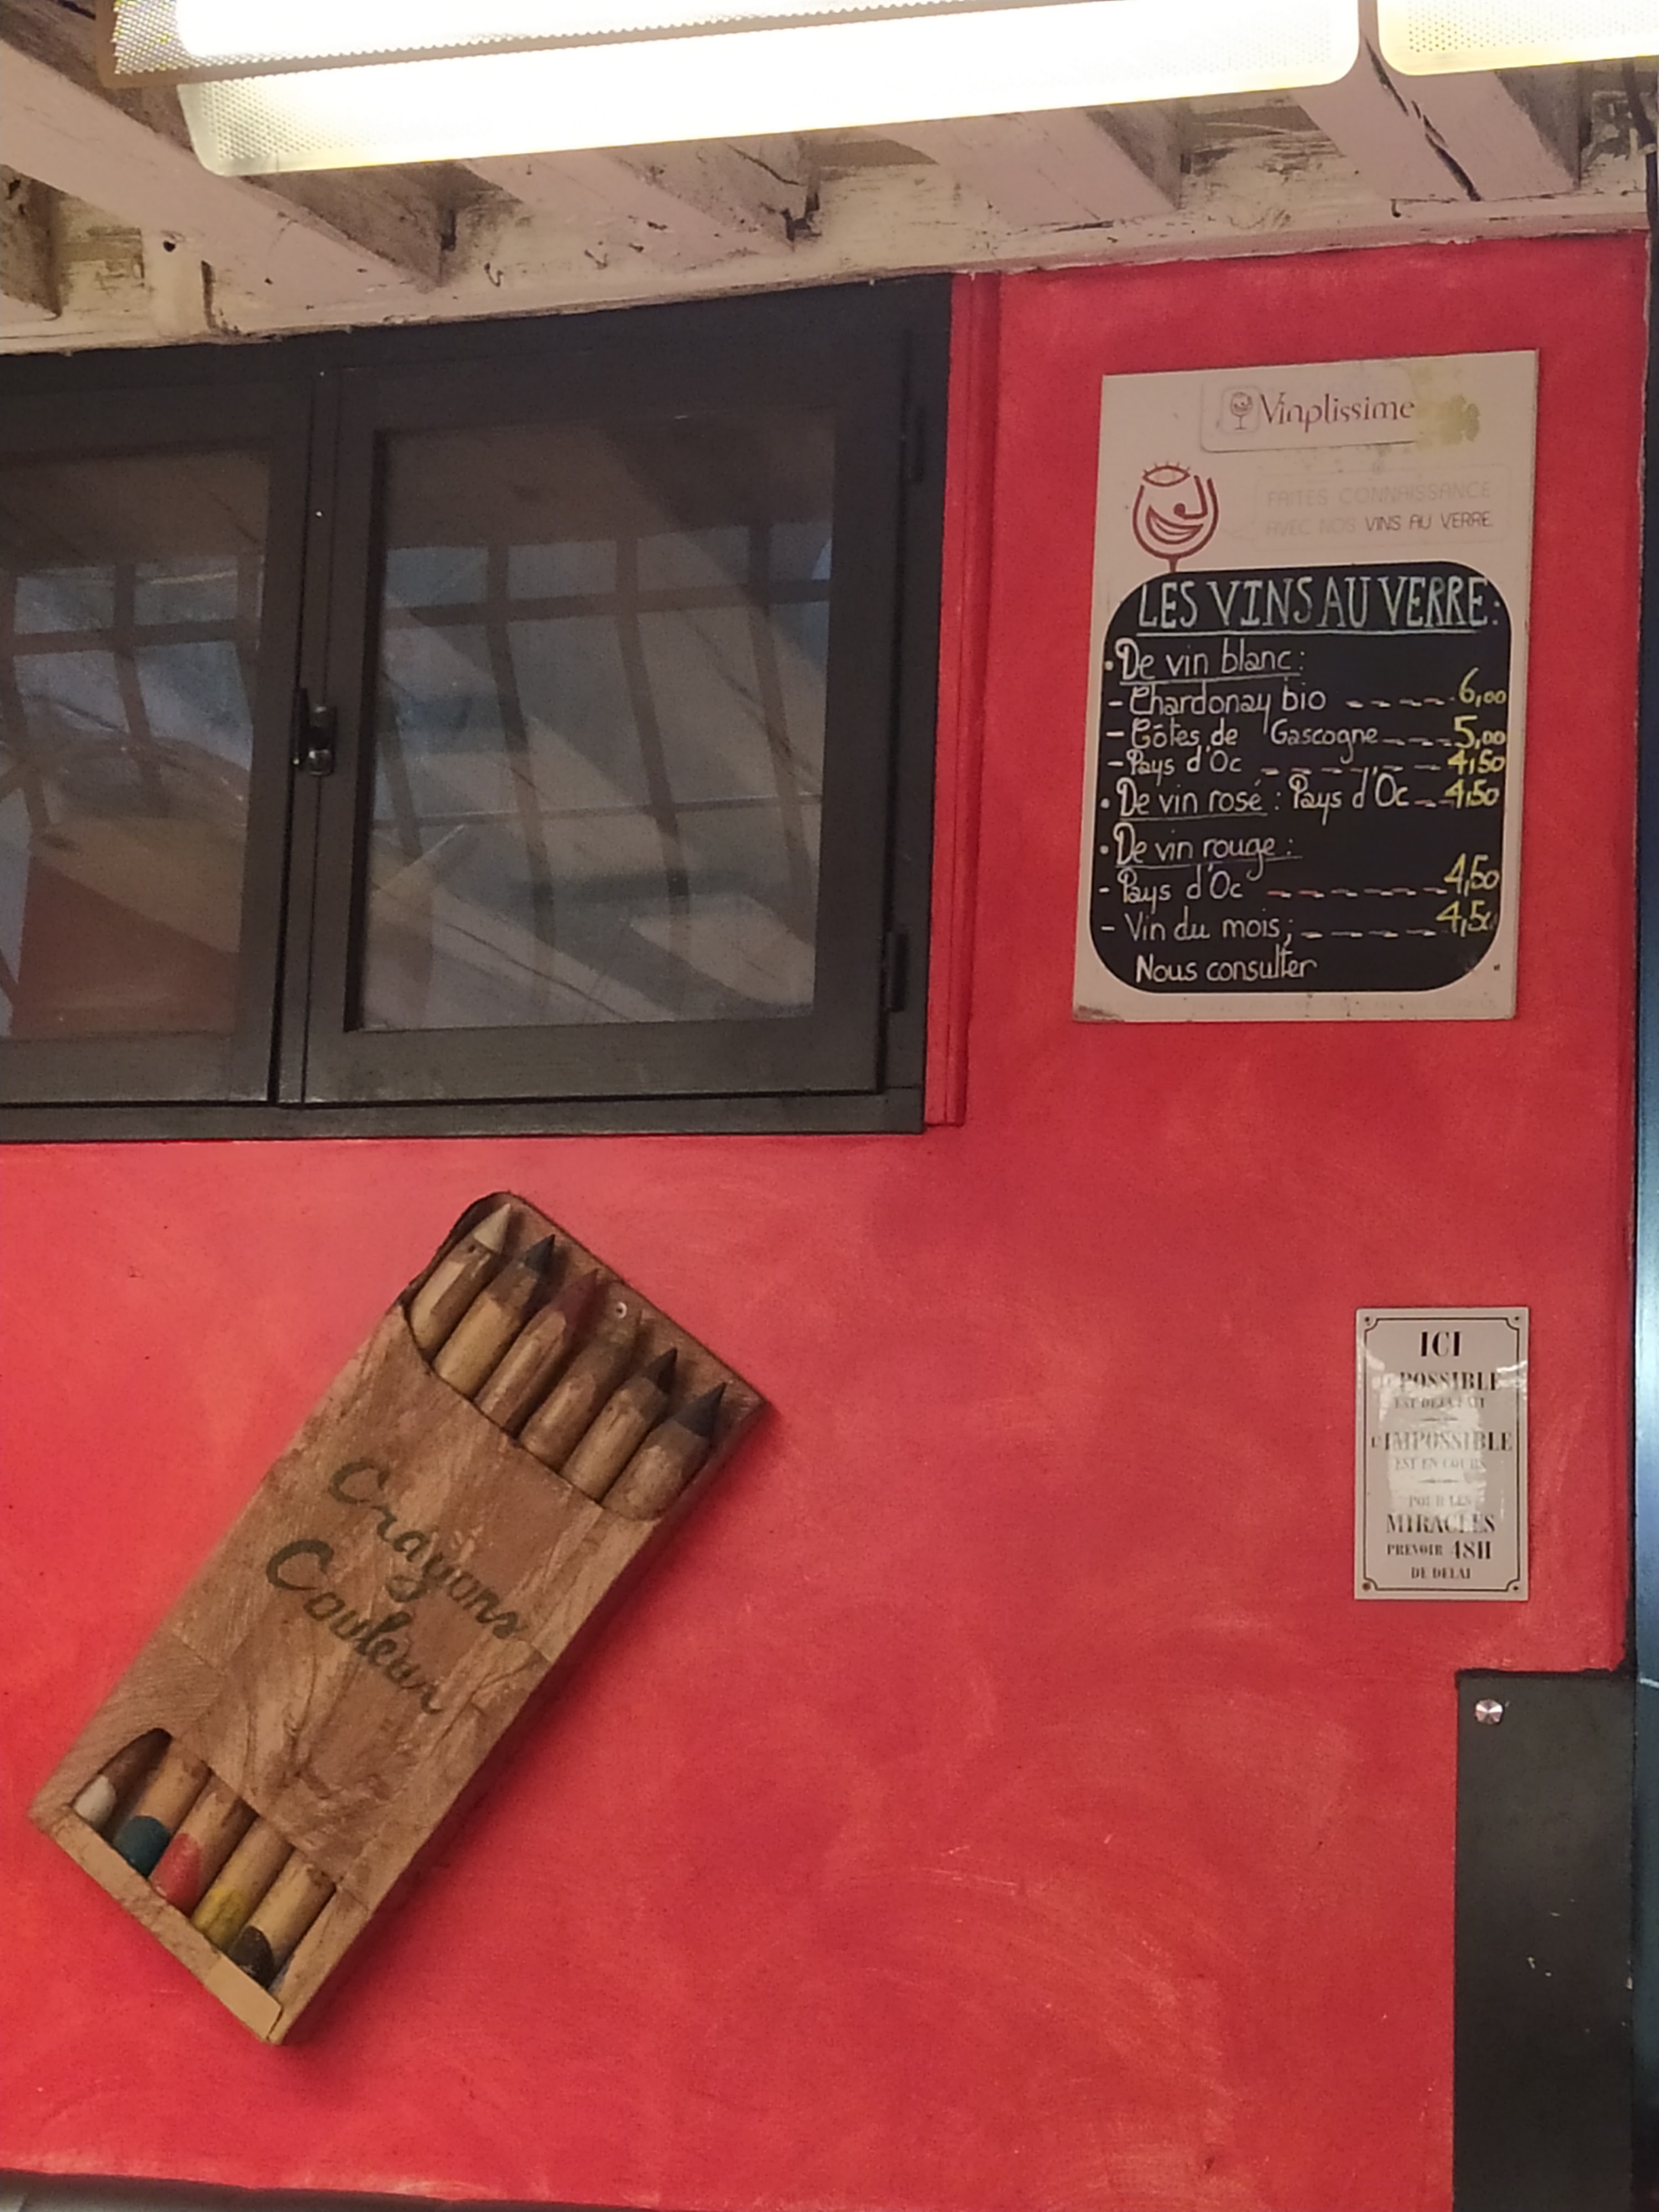 Vinplissime
FAITES CONNAISSANCE
AVEC NOS VINS AU VERRE
LES VINS AU VERRE:
• De vin blanc:
- Chardonay bio ----- 6,00
- Côtes de Gascogne---- 5,00
- Pays d'Oc ------ 4,50
• De vin rosé: Pays d'Oc -- 4,50
• De vin rouge:
- Pays d'Oc ------ 4,50
- Vin du mois; ------ 4,50
Nous consulter
Crayons
Couleur
ICI
POSSIBLE
EST DEJA FAIT
L'IMPOSSIBLE
EST EN COURS
POUR LES
MIRACLES
PREVOIR 48H
DE DELAI